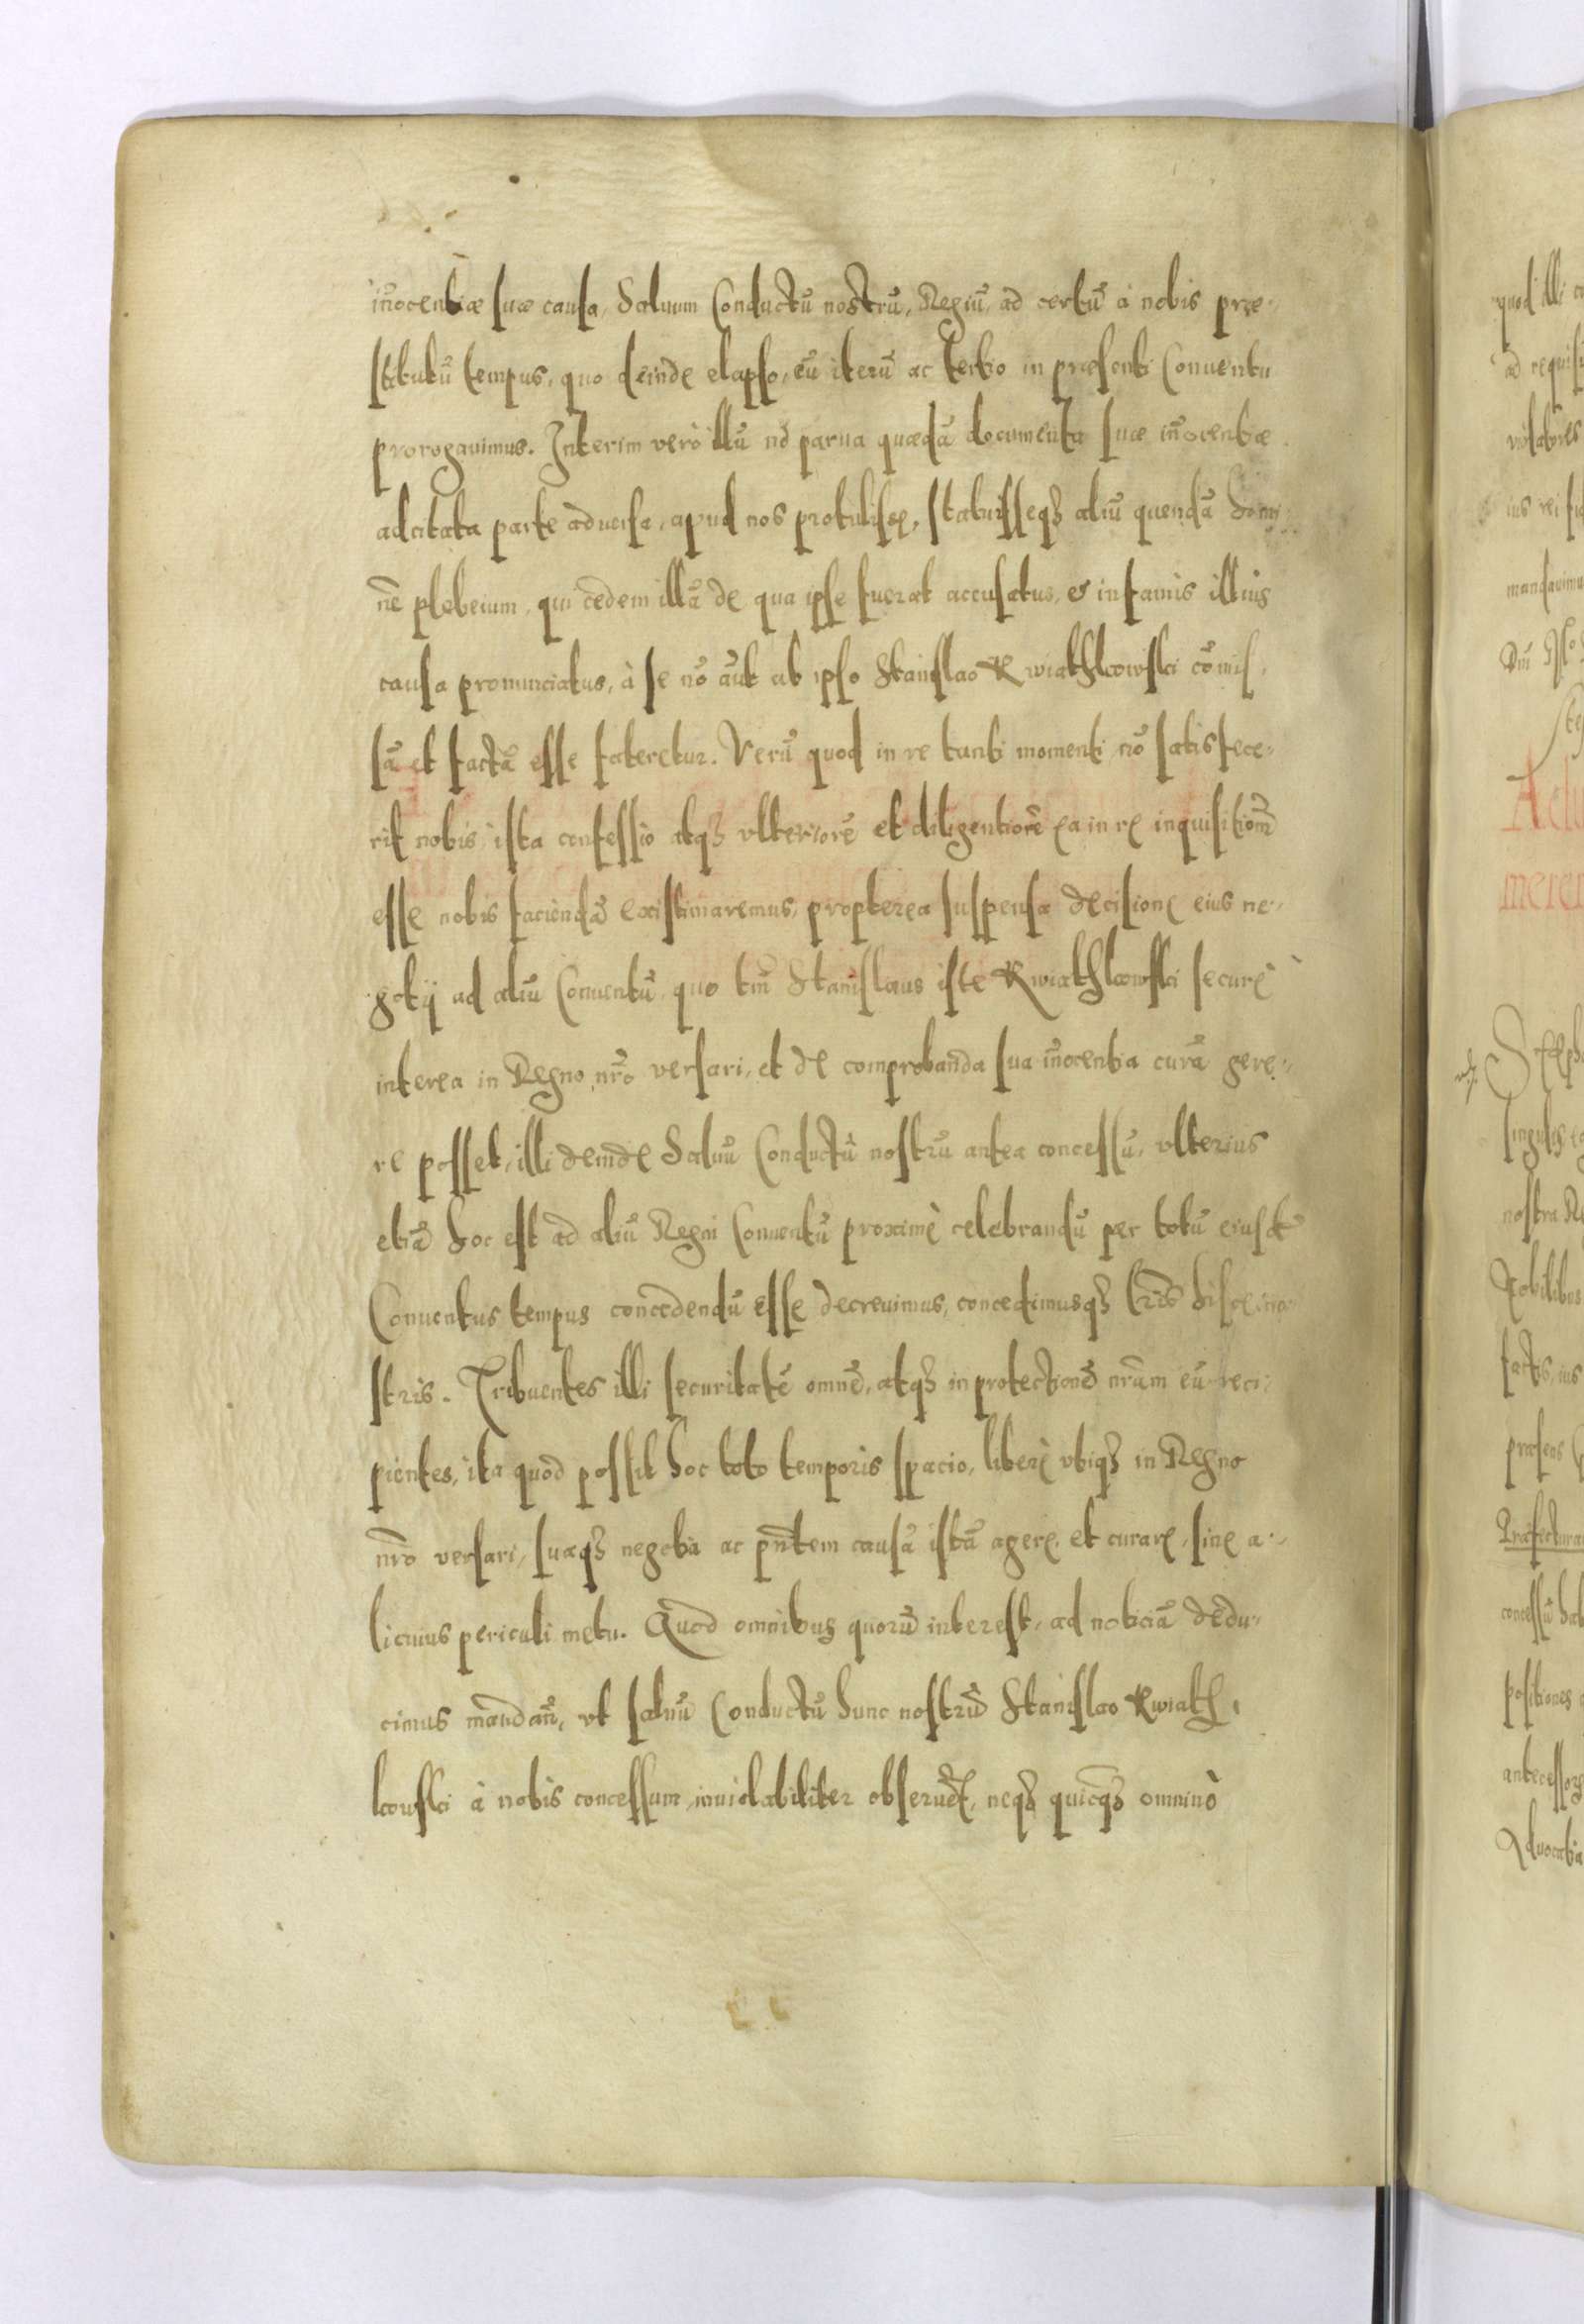 iñocentiæ suæ causa, Saluum Conductũ nostrũ, Regiũ, ad certũ à nobis præ-
stitutũ tempus, quo deinde elapso, eũ iterũ ac tertio in præsenti Conuentu
prorogauimus. Interim verò illũ nõ parua quædã documenta suæ iñocentiæ
adcitata parte aduersa, apud nos protulisse, statuisseqȝ aliũ quendã homi-
nẽ plebeium, qui cædem illã de qua ipse fuerat accusatus, & infamis illius
causa pronunciatus, à se nõ aũt ab ipso Stanislao Kwiathkowski cõmis-
sã et factã esse fateretur. Verũ quod in re tanti momenti nõ satisfece-
rit nobis ista confessio atqȝ vlteriorẽ et diligentiorẽ ea in re inquisitionẽ
esse nobis faciendã existimaremus, propterea suspensa decisione eius ne-
gotij ad aliũ Conuentũ, quo tñ Stanislaus iste Kwiathkowski securè
interea in Regno nr̃o versari, et de comprobanda sua iñocentia curã gere-
re posset, illi deinde Saluũ Conductũ nostrũ antea concessũ, vlterius
etiã hoc est ad aliũ Regni Conuentũ proximè celebrandũ per totũ eiusd̃
Conuentus tempus concedendũ esse decreuimus, concedimusqȝ lr̃is hisce no-
stris. Tribuentes illi securitatẽ omnẽ, atqȝ in protectionẽ nr̃am eũ reci-
pientes, ita quod possit hoc toto temporis spacio, liberè vbiqȝ in Regno
nr̃o versari, suaqȝ negotia ac pñtem causã istã agere, et curare, sine a-
licuius periculi metu. Quod omnibus quorũ interest, ad noticiã dedu-
cimus mandañ, vt saluũ Conductũ hunc nostrũ Stanislao Kwiath-
kowski à nobis concessum, inuiolabiliter obseruẽt, neqȝ quicqȝ omninò